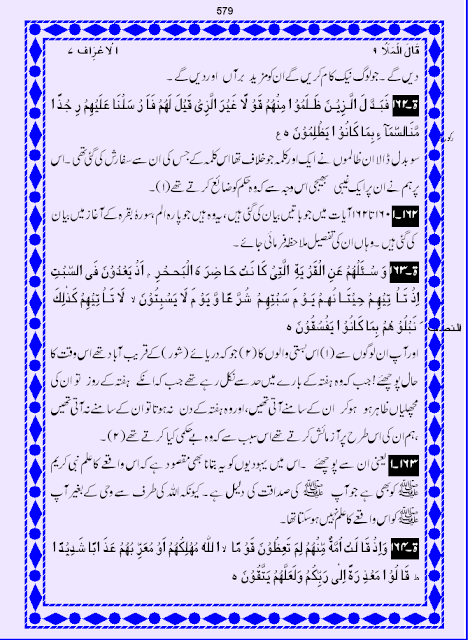 579
قَالَ الْمَلَاُ ۹
الْاَعْرَاف ۷
دیں گے۔ جو لوگ نیک کام کریں گے ان کو مزید برآں اور دیں گے۔
ق۔۱۶۲ فَبَدَّلَ الَّذِيْنَ ظَلَمُوْا مِنْهُمْ قَوْلًا غَيْرَ الَّذِىْ قِيْلَ لَهُمْ فَاَرْسَلْنَا عَلَيْهِمْ رِجْزًا
مِّنَ السَّمَآءِ بِمَا كَانُوْا يَظْلِمُوْنَ ه ع
سو بدل ڈالا ان ظالموں نے ایک اور کلمہ جو خلاف تھا اس کلمہ کے جس کی ان سے سفارش کی گئی تھی۔ اس
پر ہم نے ان پر ایک غیبی بھیجی اس وجہ سے کہ وہ حکم کو ضائع کرتے تھے (۱)۔
۱۶۲۔۱ ۱۶۰ تا ۱۶۲ آیات میں جو باتیں بیان کی گئی ہیں، یہ وہ ہیں جو پارہ الم، سورۂ بقرہ کے آغاز میں بیان
کی گئی ہیں۔ وہاں ان کی تفصیل ملاحظہ فرمائی جائے۔
ق۔۱۶۳ وَسْئَلْهُمْ عَنِ الْقَرْيَةِ الَّتِىْ كَانَتْ حَاضِرَةَ الْبَحْرِ ۘ اِذْ يَعْدُوْنَ فِى السَّبْتِ
اِذْ تَاْتِيْهِمْ حِيْتَانُهُمْ يَوْمَ سَبْتِهِمْ شُرَّعًا وَّيَوْمَ لَا يَسْبِتُوْنَ لَا تَاْتِيْهِمْ كَذٰلِكَ
نَبْلُوْهُمْ بِمَا كَانُوْا يَفْسُقُوْنَ ه
اور آپ ان لوگوں سے (۱) اس بستی والوں کا (۲) جو کہ دریائے (شور) کے قریب آباد تھے اس وقت کا
حال پوچھئے! جب کہ وہ ہفتہ کے بارے میں حد سے نکل رہے تھے جب کہ انکے ہفتہ کے روز تو ان کی
مچھلیاں ظاہر ہو ہو کر ان کے سامنے آتی تھیں، اور وہ ہفتہ کے دن نہ ہوتا تو ان کے سامنے نہ آتی تھیں
،ہم ان کی اس طرح پر آزمائش کرتے تھے اس سبب سے کہ وہ بےحکمی کیا کرتے تھے (۲)۔
۱۶۳۔۱ یعنی ان سے پوچھئے۔ اس میں یہودیوں کو یہ بتانا بھی مقصود ہے کہ اس واقعے کا علم نبی کریم
ﷺ کو بھی ہے جو آپ ﷺ کی صداقت کی دلیل ہے۔ کیونکہ اللہ کی طرف سے وحی کے بغیر آپ
ﷺ کو اس واقعے کا علم نہیں ہو سکتا تھا۔
ق۔۱۶۴ وَاِذْ قَالَتْ اُمَّةٌ مِّنْهُمْ لِمَ تَعِظُوْنَ قَوْمًا ۙ اللّٰهُ مُهْلِكُهُمْ اَوْ مُعَذِّبُهُمْ عَذَابًا شَدِيْدًا
ط قَالُوْا مَعْذِرَةً اِلٰى رَبِّكُمْ وَلَعَلَّهُمْ يَتَّقُوْنَ ه